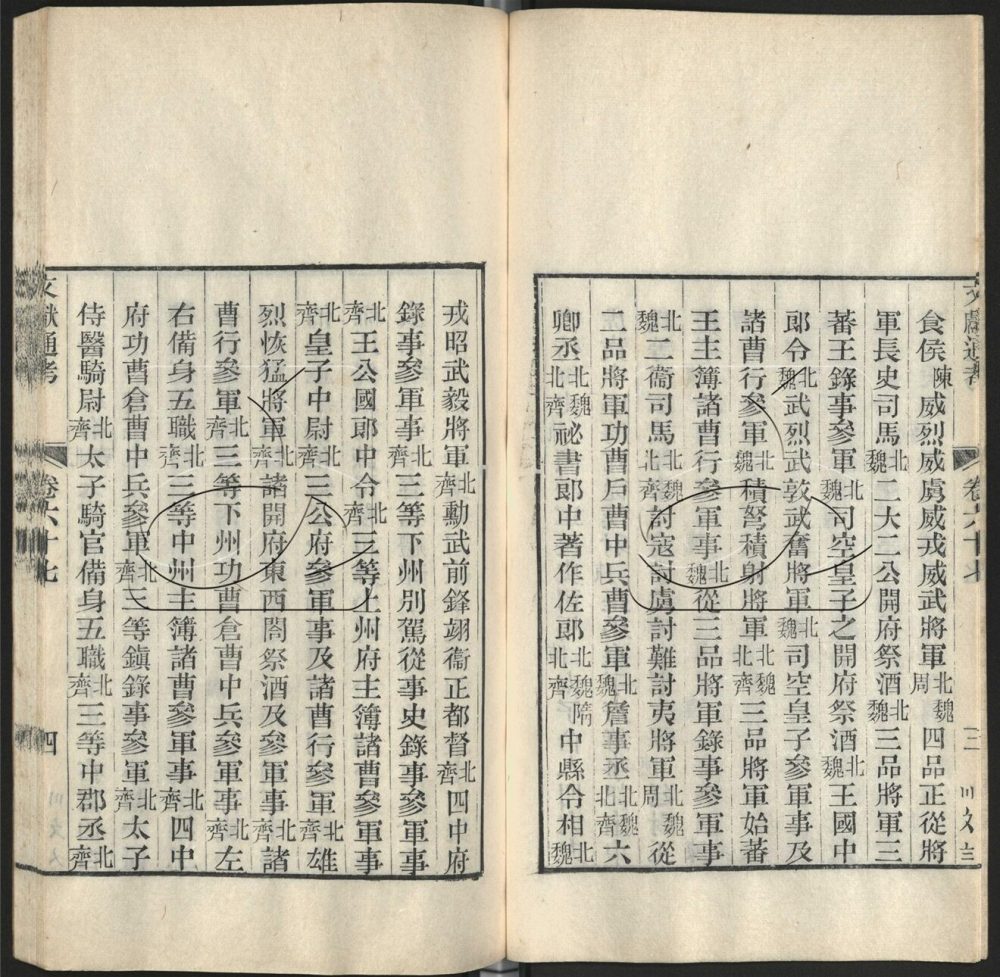 食侯陳威烈威虜威戎威武將軍北魏周四品正從將
軍長史司馬北魏二大二公開府祭酒北魏三品將軍三
蕃王錄事參軍北魏司空皇子之開府祭酒北魏王國中
郎令北魏武烈武敦武奮將軍北魏司空皇子參軍事及
諸曹行參軍北魏積弩積射將軍北魏北齊三品將軍始蕃
王主簿諸曹行參軍事北魏從三品將軍錄事參軍事
北魏二衞司馬北魏北齊討寇討虜討難討夷將軍北魏周從
二品將軍功曹戶曹中兵曹參軍北魏詹事丞北魏北齊六
卿丞北魏北齊祕書郎中著作佐郎北魏北齊隋中縣令相北魏
文獻通考 卷六十七 三
川文三
戎昭武毅將軍北齊勳武前鋒翊衞正都督北齊四中府
錄事參軍事北齊三等下州別駕從事史錄事參軍事
北齊王公國郎中令北齊三等上州府主簿諸曹參軍事
北齊皇子中尉北齊三公府參軍事及諸曹行參軍北齊雄
烈恢猛將軍北齊諸開府東西閤祭酒及參軍事北齊諸
曹行參軍北齊三等下州功曹倉曹中兵參軍事北齊左
右備身五職北齊三等中州主簿諸曹參軍事北齊四中
府功曹倉曹中兵參軍北齊三等鎮錄事參軍北齊太子
侍醫騎尉北齊太子騎官備身五職北齊三等中郡丞北齊
文獻通考 卷六十七 四